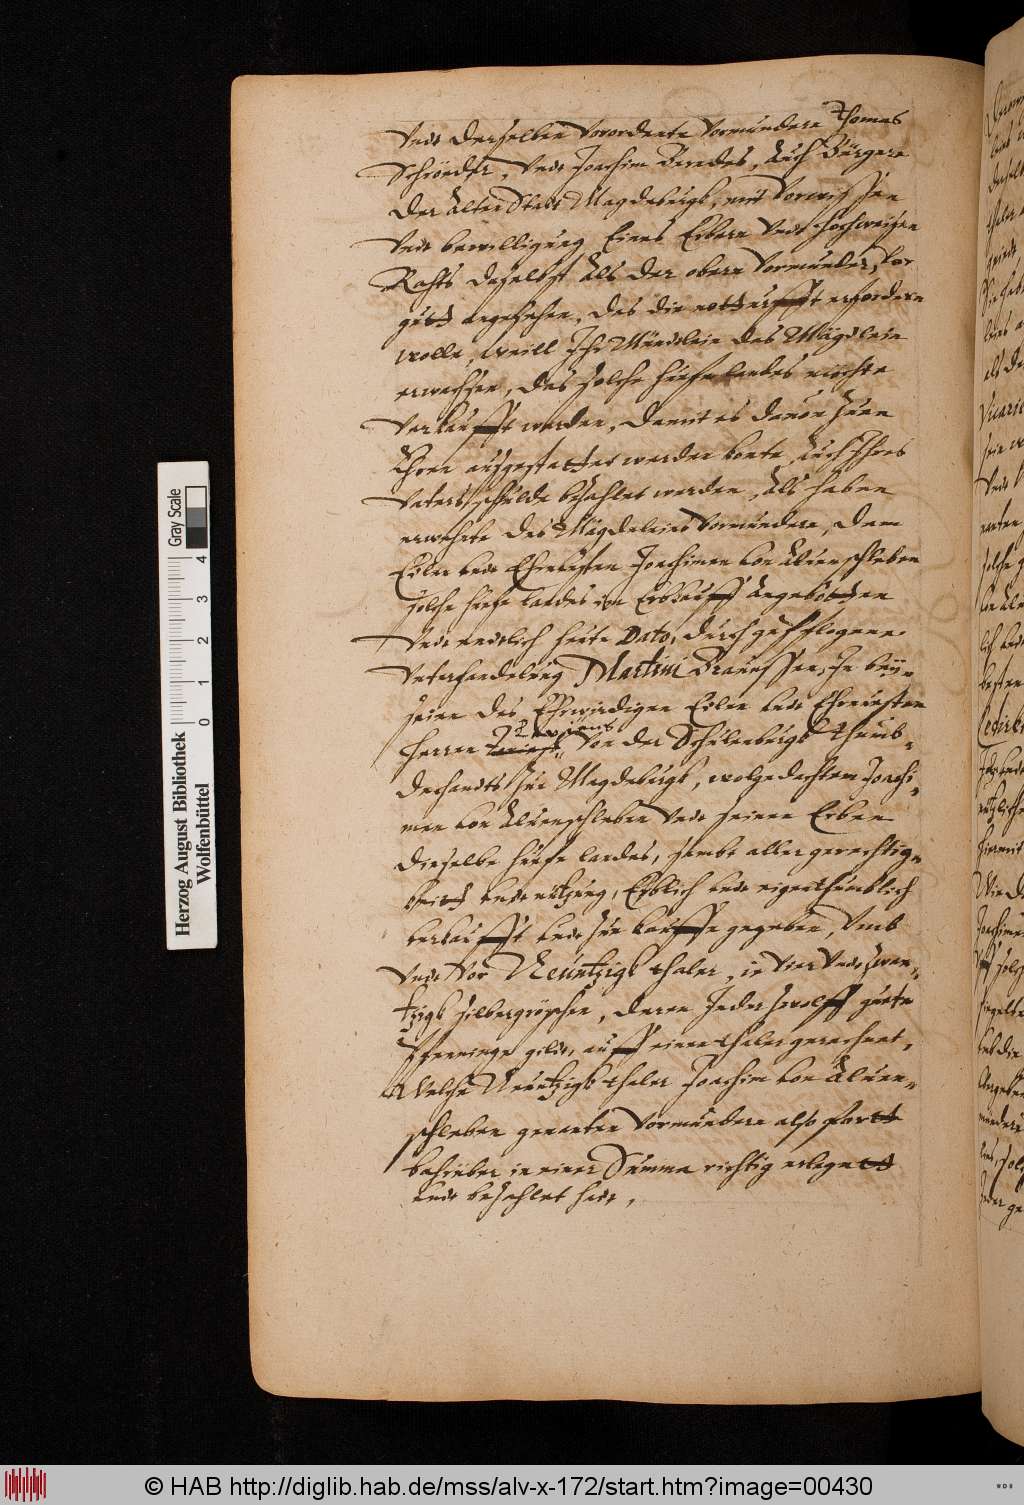 Vnd derselben Vorordente Vormundere Thomas
Schröeder, Vnd Joachim Brandes, Auch Bürgere
der Alten Stadt Magdeburgk, mit Vorwissen
Vnd bewilligung Eines Erbarn Vnd Hochweisen
Rahts daselbst Als der obern Vormunder, Vor
gutt angesehen, das die notturfft erfordern
wolle, weill Ihr Mündelein das Mägdelein
erwachsen, das solche Hufe landes möchte
Verkaufft werden, damit es dauon Zuen
Ehren ausgestattet werden konte, Auch Ihres
Vaters schulde bezahlet werden, Als haben
erwehnte des Mägdeleins Vormundere, dem
Edlen vnd Ehruesten Joachimen von Aluenschleben
solche Hufe landes im Erbkauff Angebotten
Vnd endtlich heute Dato, durch gepflogene
Vnterhandelung Martini Braunssen, In bey-
sein des Ehrwirdigen Edlen vnd Ehruesten
Herrn Leuiens Von der Schulenburgk Thumb-
dechandts Zue Magdeburgk, wolgedachtem Joachi-
men von Aluenschleben Vnd seinen Erben
dieselbe Hufe landes, sambt aller gerechtig-
keitt vnd nützung, Erblich vnd eigenthümblich
verkaufft vnd Zue kauffe gegeben, Vmb
Vnd Vor Neuntzigk thaler, ie Vier Vnd Zwan-
tzigk silbergröschen, deren Jeder Zwolff gute
Pfenninge gildt, auff einen thaler gerechnet,
Welche Neuntzigk thaler Joachim von Aluen-
schleben genanten Vormundern also fortt
in einer Summa richtig erlegett
vnd bezahlet hadt,
Herzog August Bibliothek
Wolfenbüttel
0 1 2 3 4
Gray Scale
© HAB http://diglib.hab.de/mss/alv-x-172/start.htm?image=00430